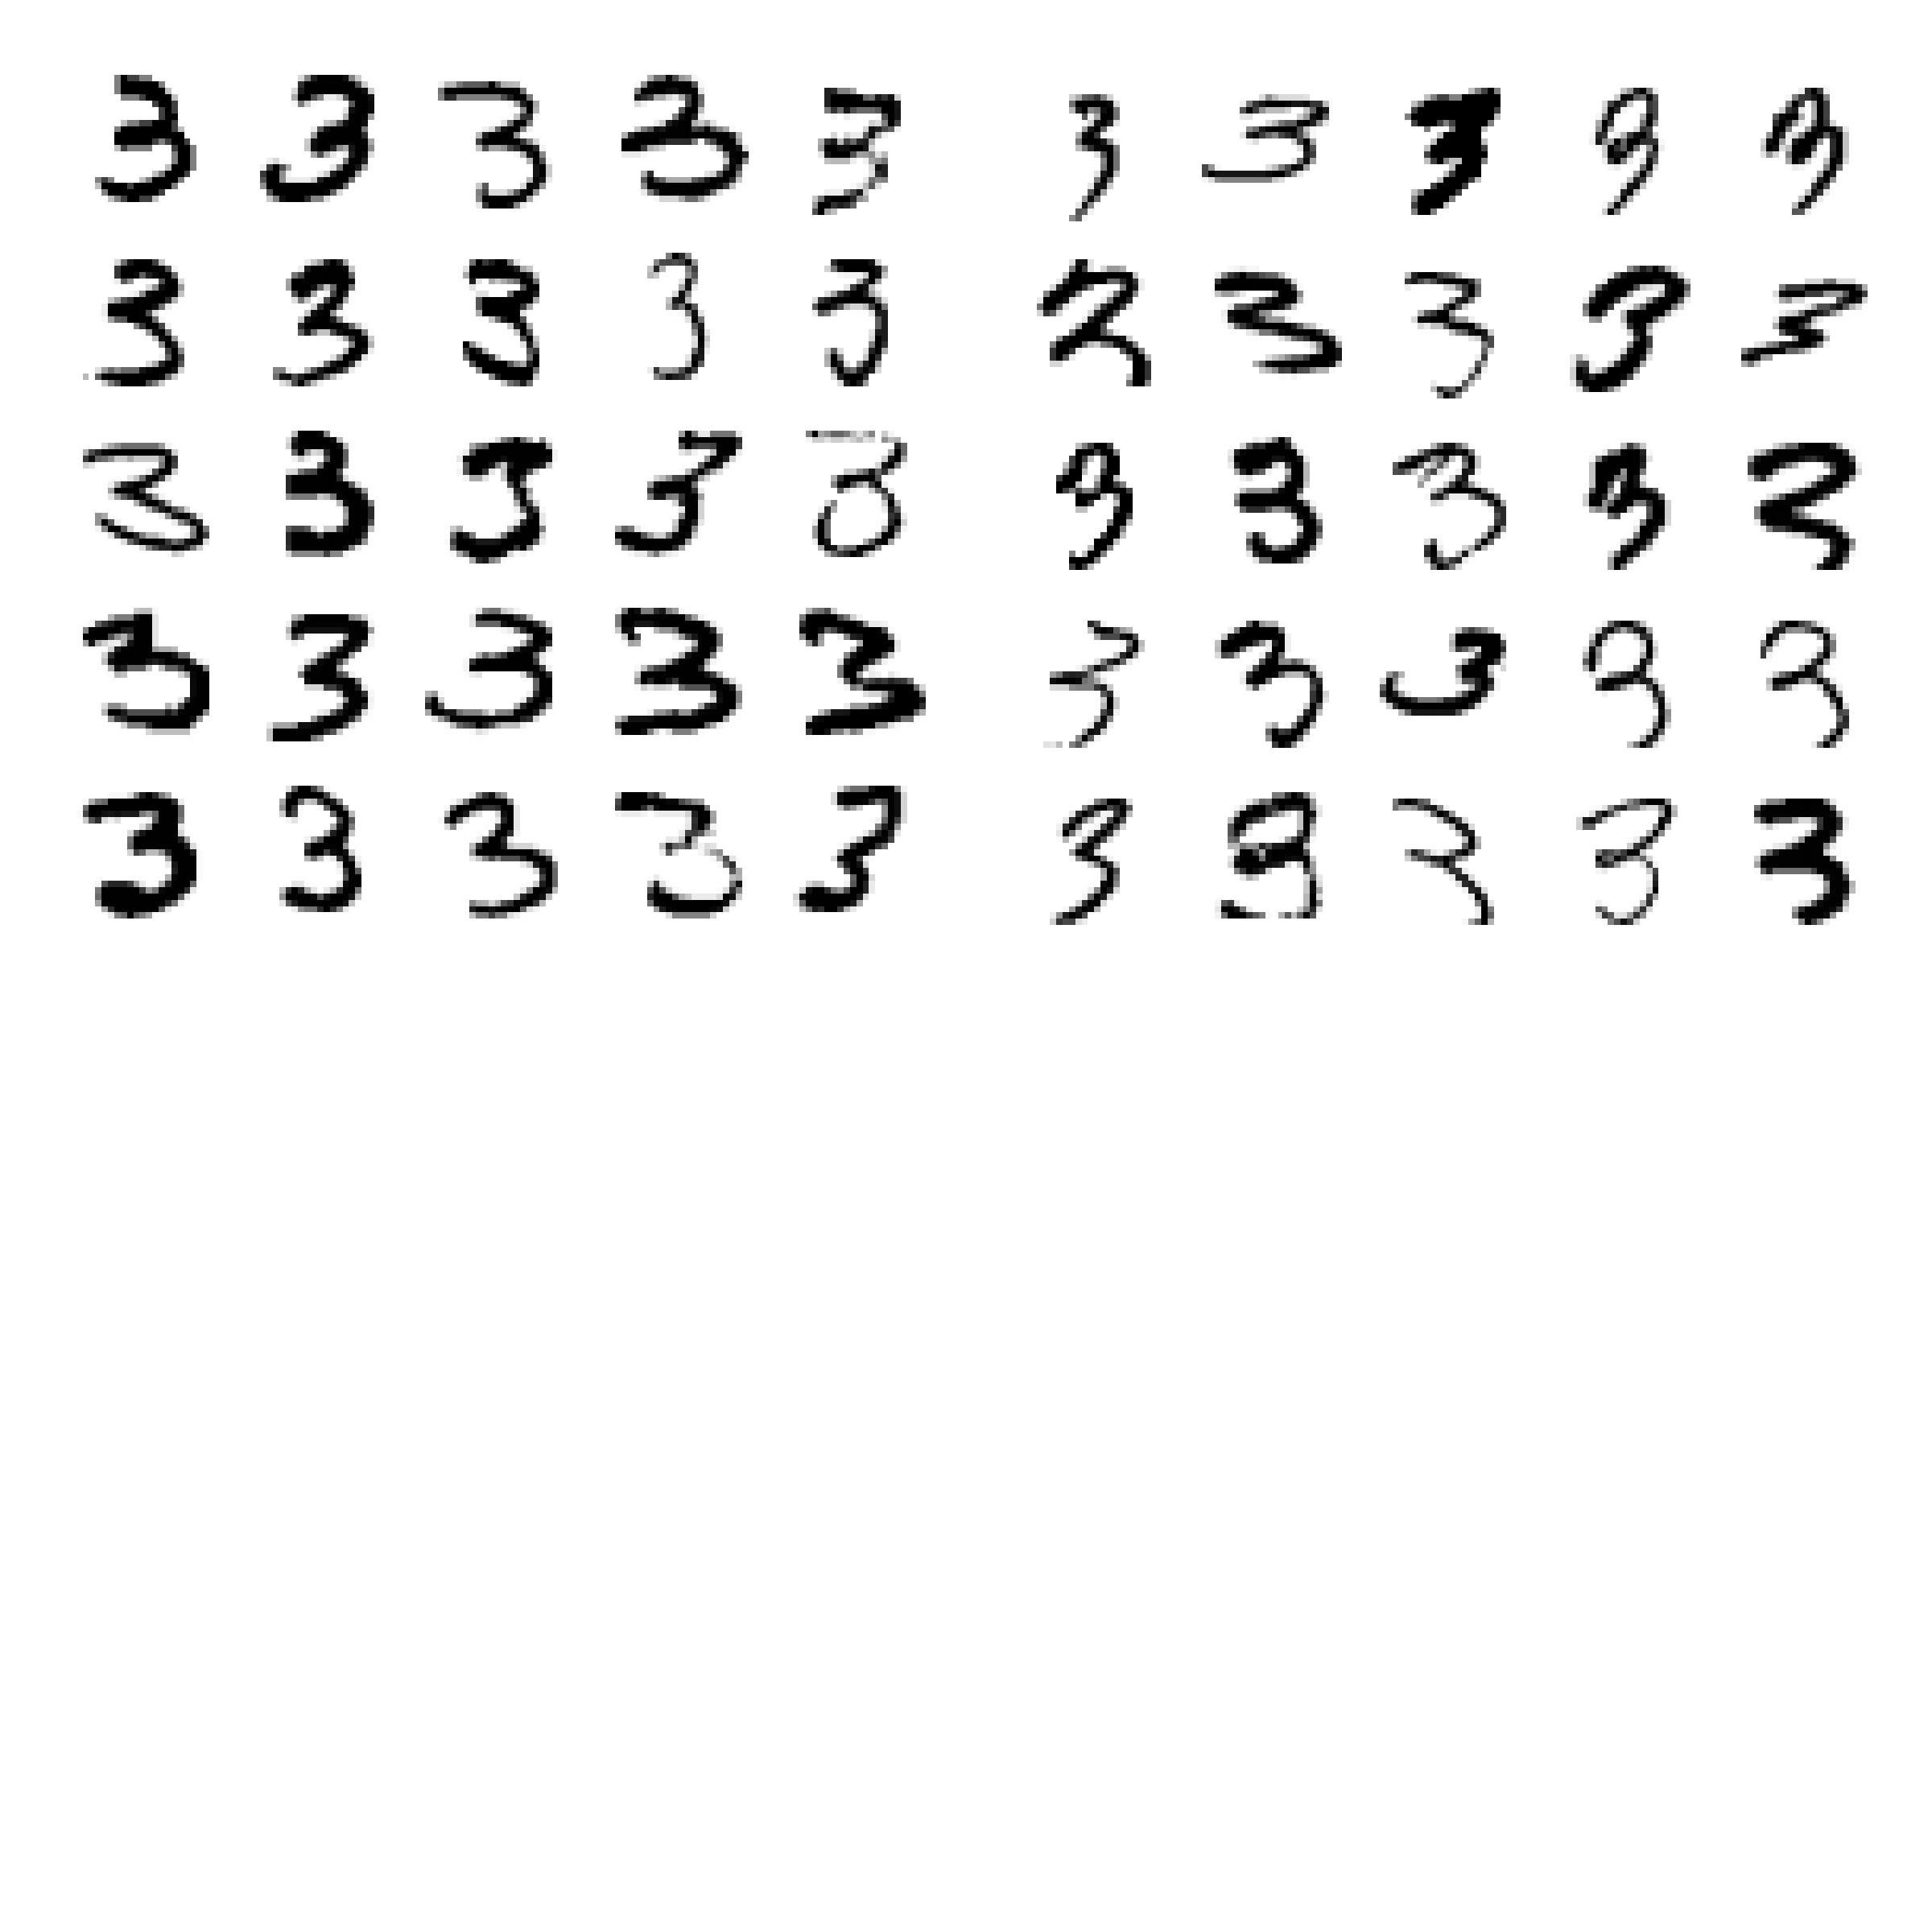 3 3 3 3 3 3 3 3 3 3
3 3 3 3 3 3 3 3 3 3
3 3 3 3 3 3 3 3 3 3
3 3 3 3 3 3 3 3 3 3
3 3 3 3 3 3 3 3 3 3